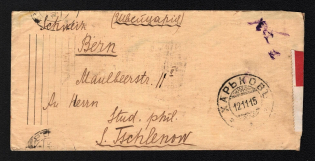 (Швейцарія)
Schweiz
Bern
Maulbeerstr. 11
An Herrn
Stud. phil.
S. Tschlenow
ХАРЬКОВЪ
12 11 15